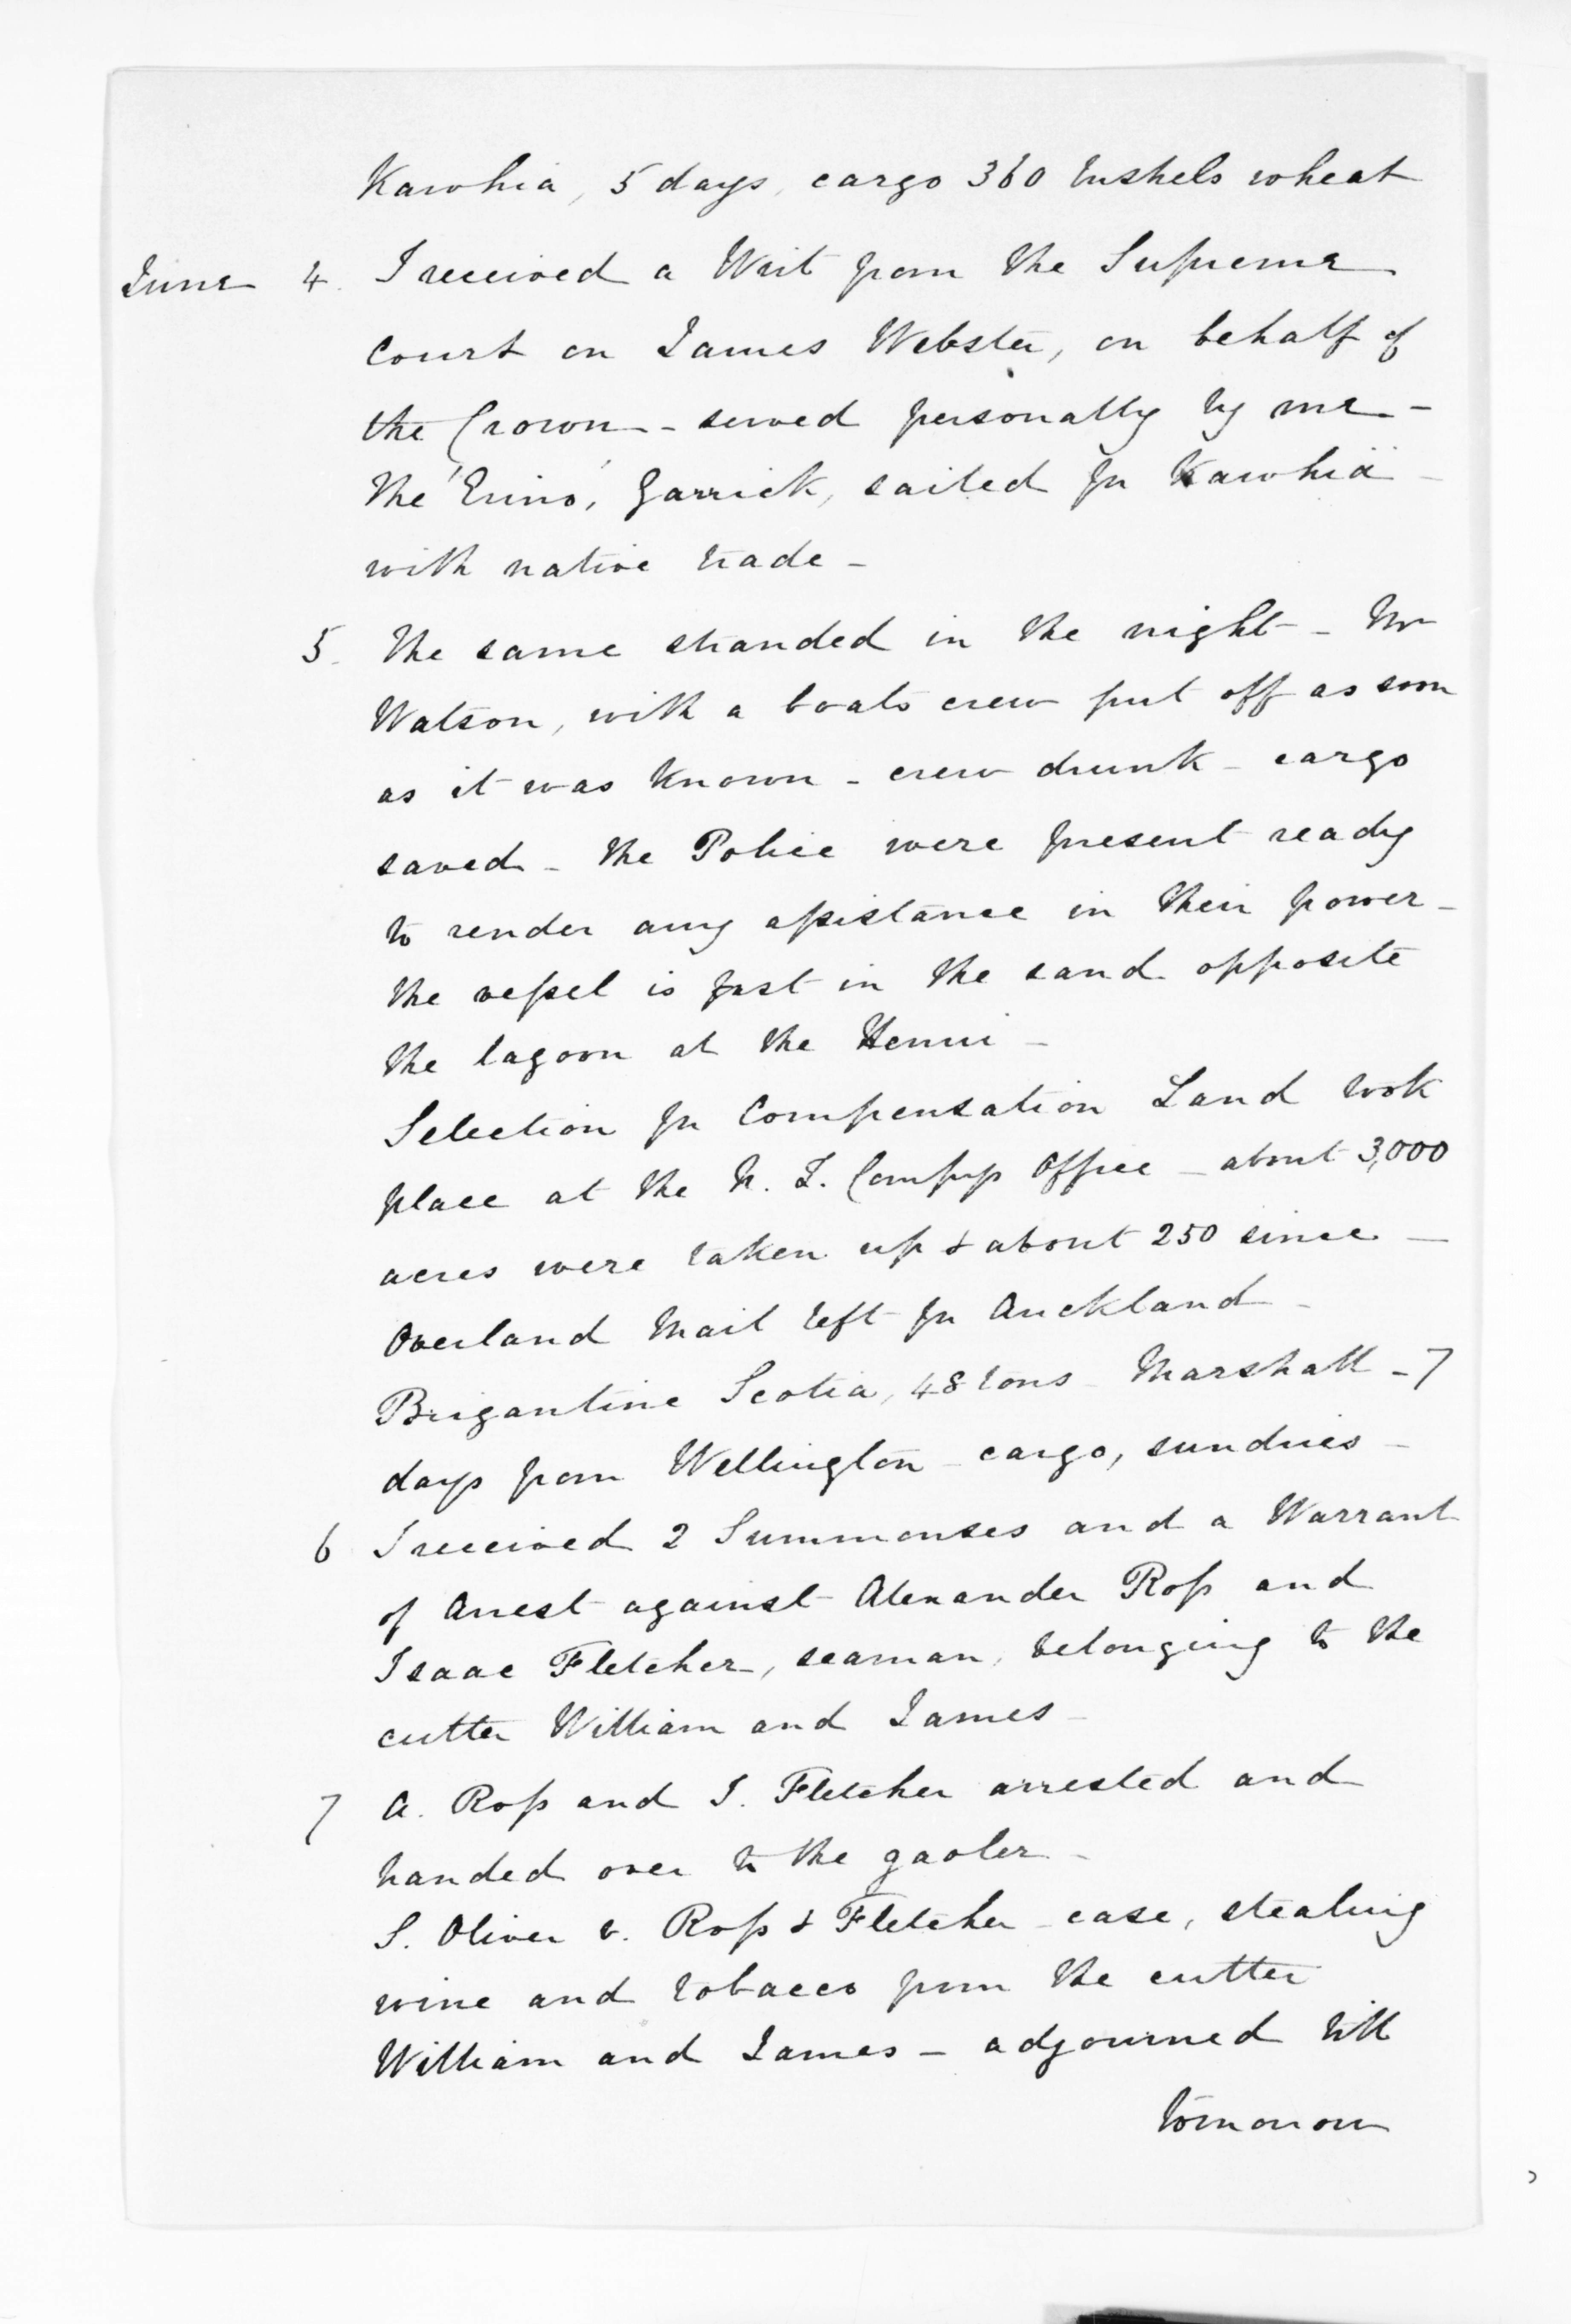 Kawhia, 5 days, cargo 360 bushels wheat
June 4. I received a Writ from the Supreme
Court on James Webster, on behalf of
the Crown - served personally by me -
The 'Erino', Garrick, sailed for Kawhia -
with native trade -
5. The same stranded in the night - Mr
Watson, with a boats crew put off as soon
as it was known - crew drunk - cargo
saved - the Police were present ready
to render any assistance in their power -
the vessel is fast in the sand opposite
the lagoon at the Henui -
Selection for Compensation Land took
place at the N. Z. Compys Office - about 3,000
acres were taken up & about 250 since -
Overland Mail left for Auckland -
Brigantine Scotia, 48 tons - Marshall - 7
days from Wellington - cargo, sundries -
6 I received 2 Summonses and a Warrant
of Arrest against Alexander Ross and
Isaac Fletcher, seaman, belonging to the
cutter William and James -
7 A. Ross and I. Fletcher arrested and
handed over to the gaoler -
S. Oliver v. Ross & Fletcher - case, stealing
wine and tobacco from the cutter
William and James - adjourned till
tomorrow